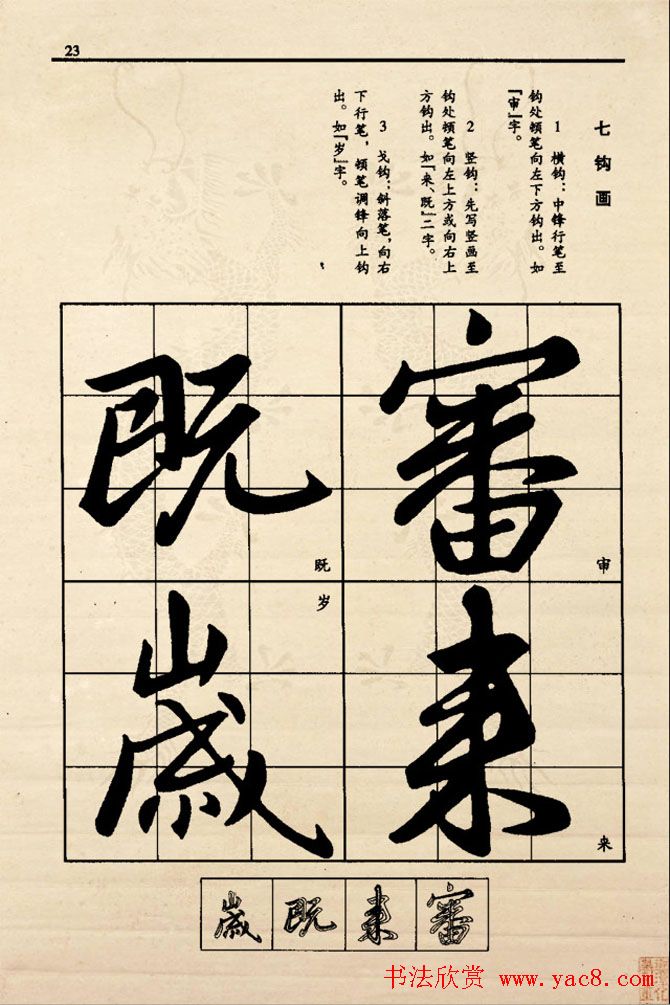 23
七钩画
1 横钩：中锋行笔至
钩处顿笔向左下方钩出。如
『审』字。
2 竖钩：先写竖画至
钩处顿笔向左上方或向右上
方钩出。如『来、既』二字。
3 戈钩：斜落笔，向右
下行笔，顿笔调锋向上钩
出。如『岁』字。
審
审
来
来
既
既
岁
歲
歲既来審
书法欣赏 www.yac8.com